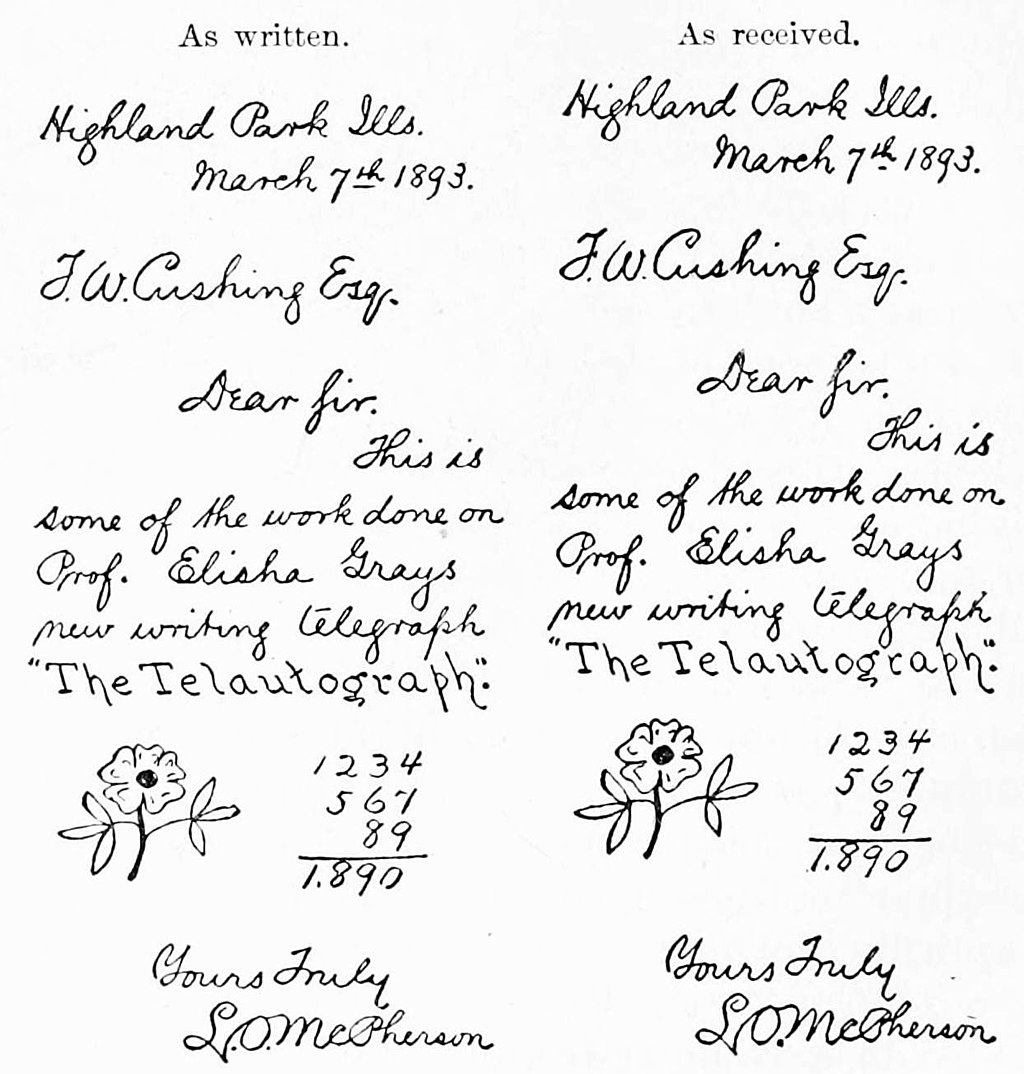 As written.
Highland Park Ills.
March 7th 1893.
F. W. Cushing Esq.
Dear Sir.
This is
some of the work done on
Prof. Elisha Grays
new writing telegraph
"The Telautograph".
1234
567
89
1.890
Yours Truly
L. O. McPherson
As received.
Highland Park Ills.
March 7th 1893.
F. W. Cushing Esq.
Dear Sir.
This is
some of the work done on
Prof. Elisha Grays
new writing telegraph
"The Telautograph".
1234
567
89
1.890
Yours Truly
L. O. McPherson